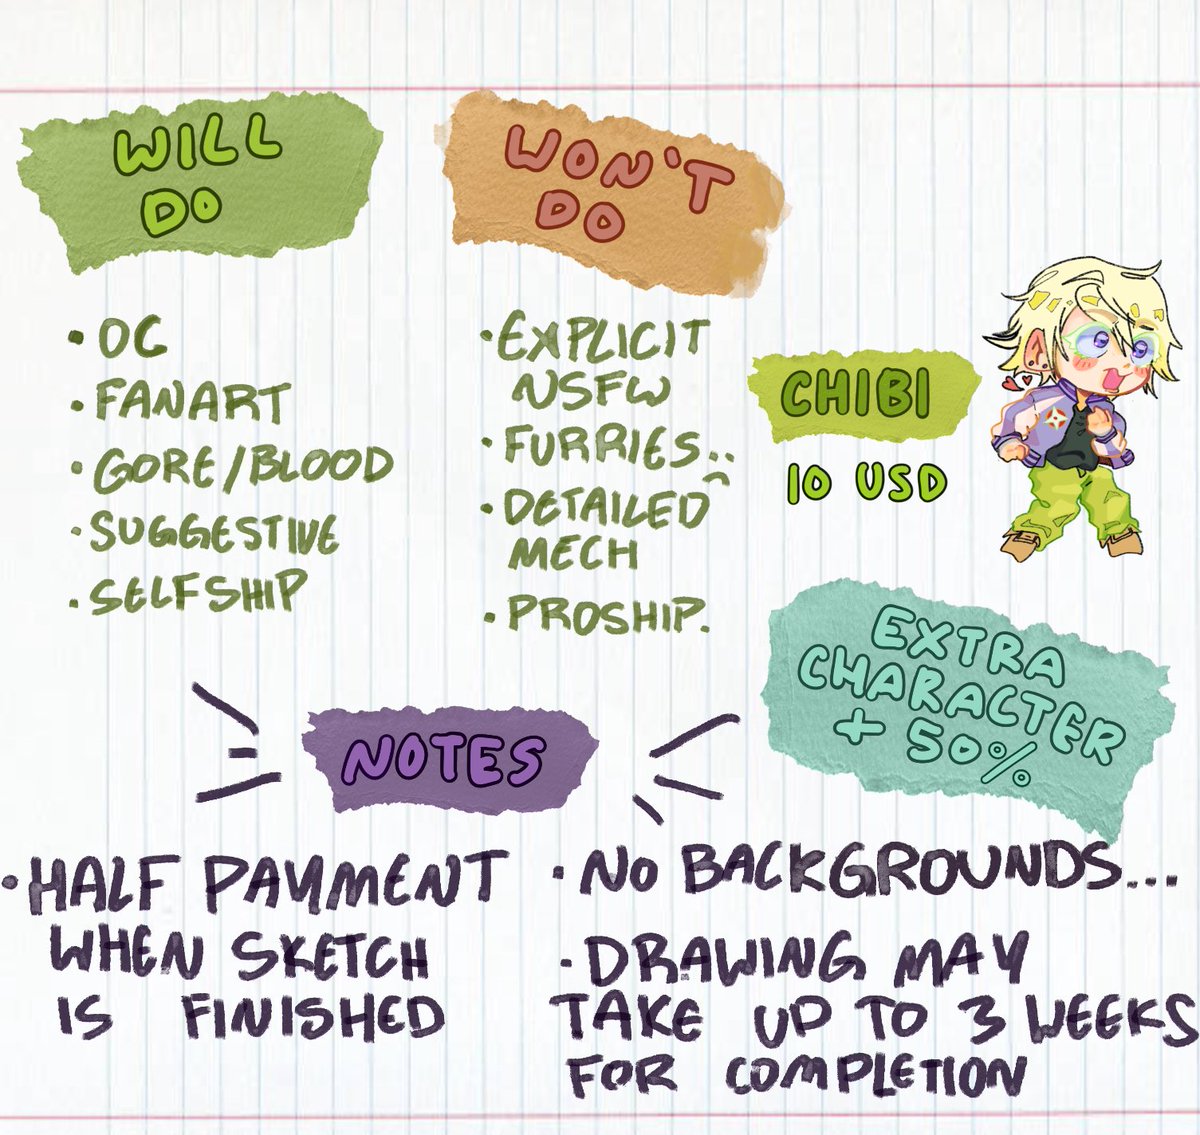 WILL
DO
• OC
• FANART
• GORE/BLOOD
• SUGGESTIVE
• SELFSHIP
WON'T
DO
• EXPLICIT
NSFW
• FURRIES..
• DETAILED
MECH
• PROSHIP.
CHIBI
10 USD
EXTRA
CHARACTER
+ 50%
NOTES
• HALF PAYMENT
WHEN SKETCH
IS FINISHED
• NO BACKGROUNDS...
• DRAWING MAY
TAKE UP TO 3 WEEKS
FOR COMPLETION